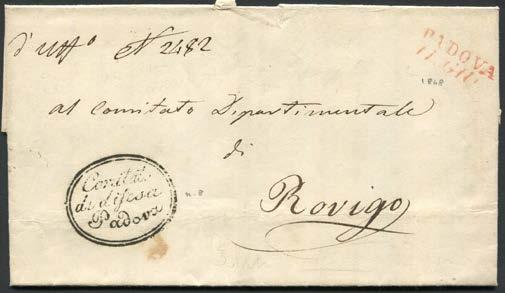 d'uff.o N 2482
PADOVA
11. GIU
1848
al Comitato Dipartimentale
di
Rovigo
Comitato
di difesa
Padova
n. 8